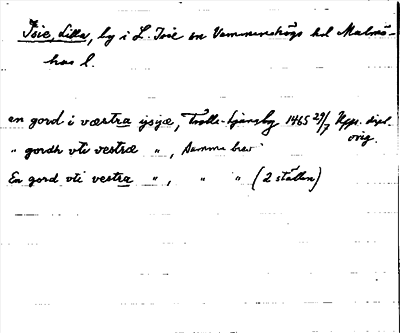 Isie, Lilla, by i L. Isie sn Vemmenhögs hd Malmö-
hus l.
en gord i væstra ysyæ, Trolle-Ljungby 1465 29/7 Upps. dipl.
orig.
" gordh vti vestræ ", Samma brev
En gord vti vestra ", " " (2 ställen)